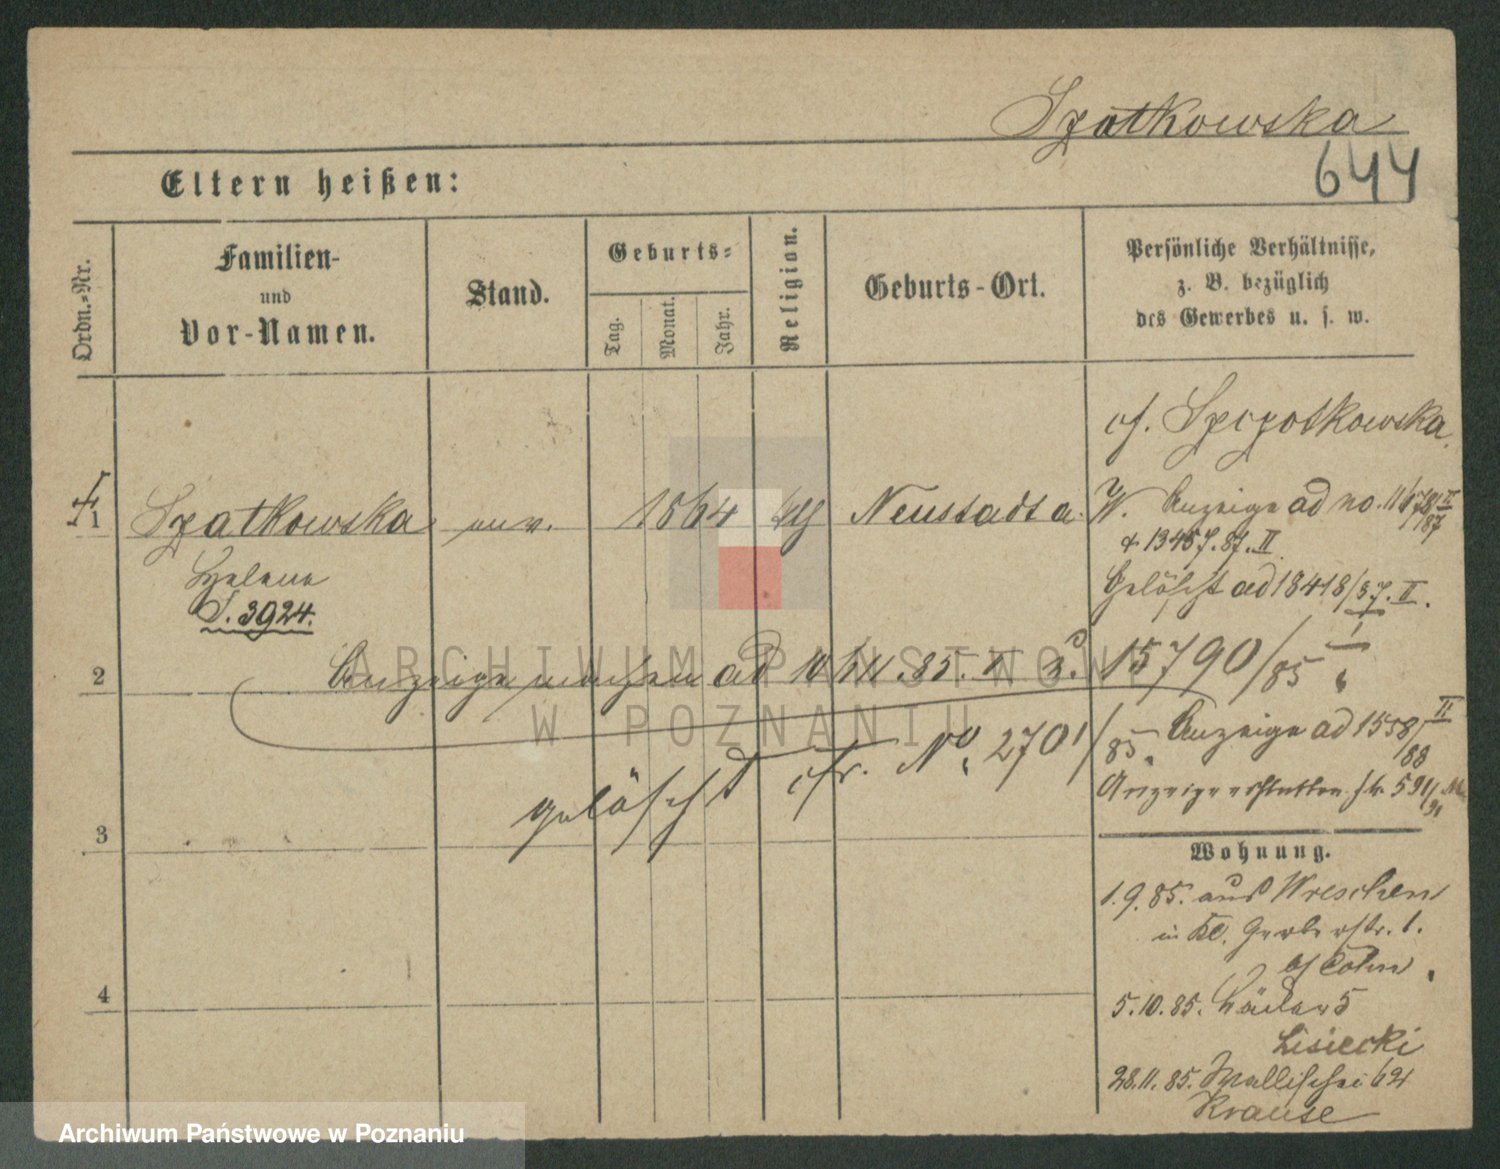 Szatkowska
644
Eltern heißen:
Ordn.-Nr.
Familien-
und
Vor-Namen.
Stand.
Geburts-
Tag.
Monat.
Jahr.
Religion.
Geburts-Ort.
Persönliche Verhältnisse,
z. B. bezüglich
des Gewerbes u. s. w.
cf. Szczotkowska.
1
Szatkowska
unv.
1864
Neustadt a.
W.
Anzeige ad no.
Helene
S. 3924.
& 13457.87.II
Gelöscht ad 18418/87.II.
2
Anzeige machen ad
.85. II
15790/85
gelöscht cfr. No. 2701/85.
Anzeige ad 1558/88 II
Anzeige erstatten
3
4
Wohnung.
1.9.85. aus Wreschen
in Kl. Gerberstr. 1.
bf Cohn.
5.10.85.
5
Lisiecki
28.11.85. Wallischei
Krause
ARCHIWUM PAŃSTWOWE
W POZNANIU
Archiwum Państwowe w Poznaniu